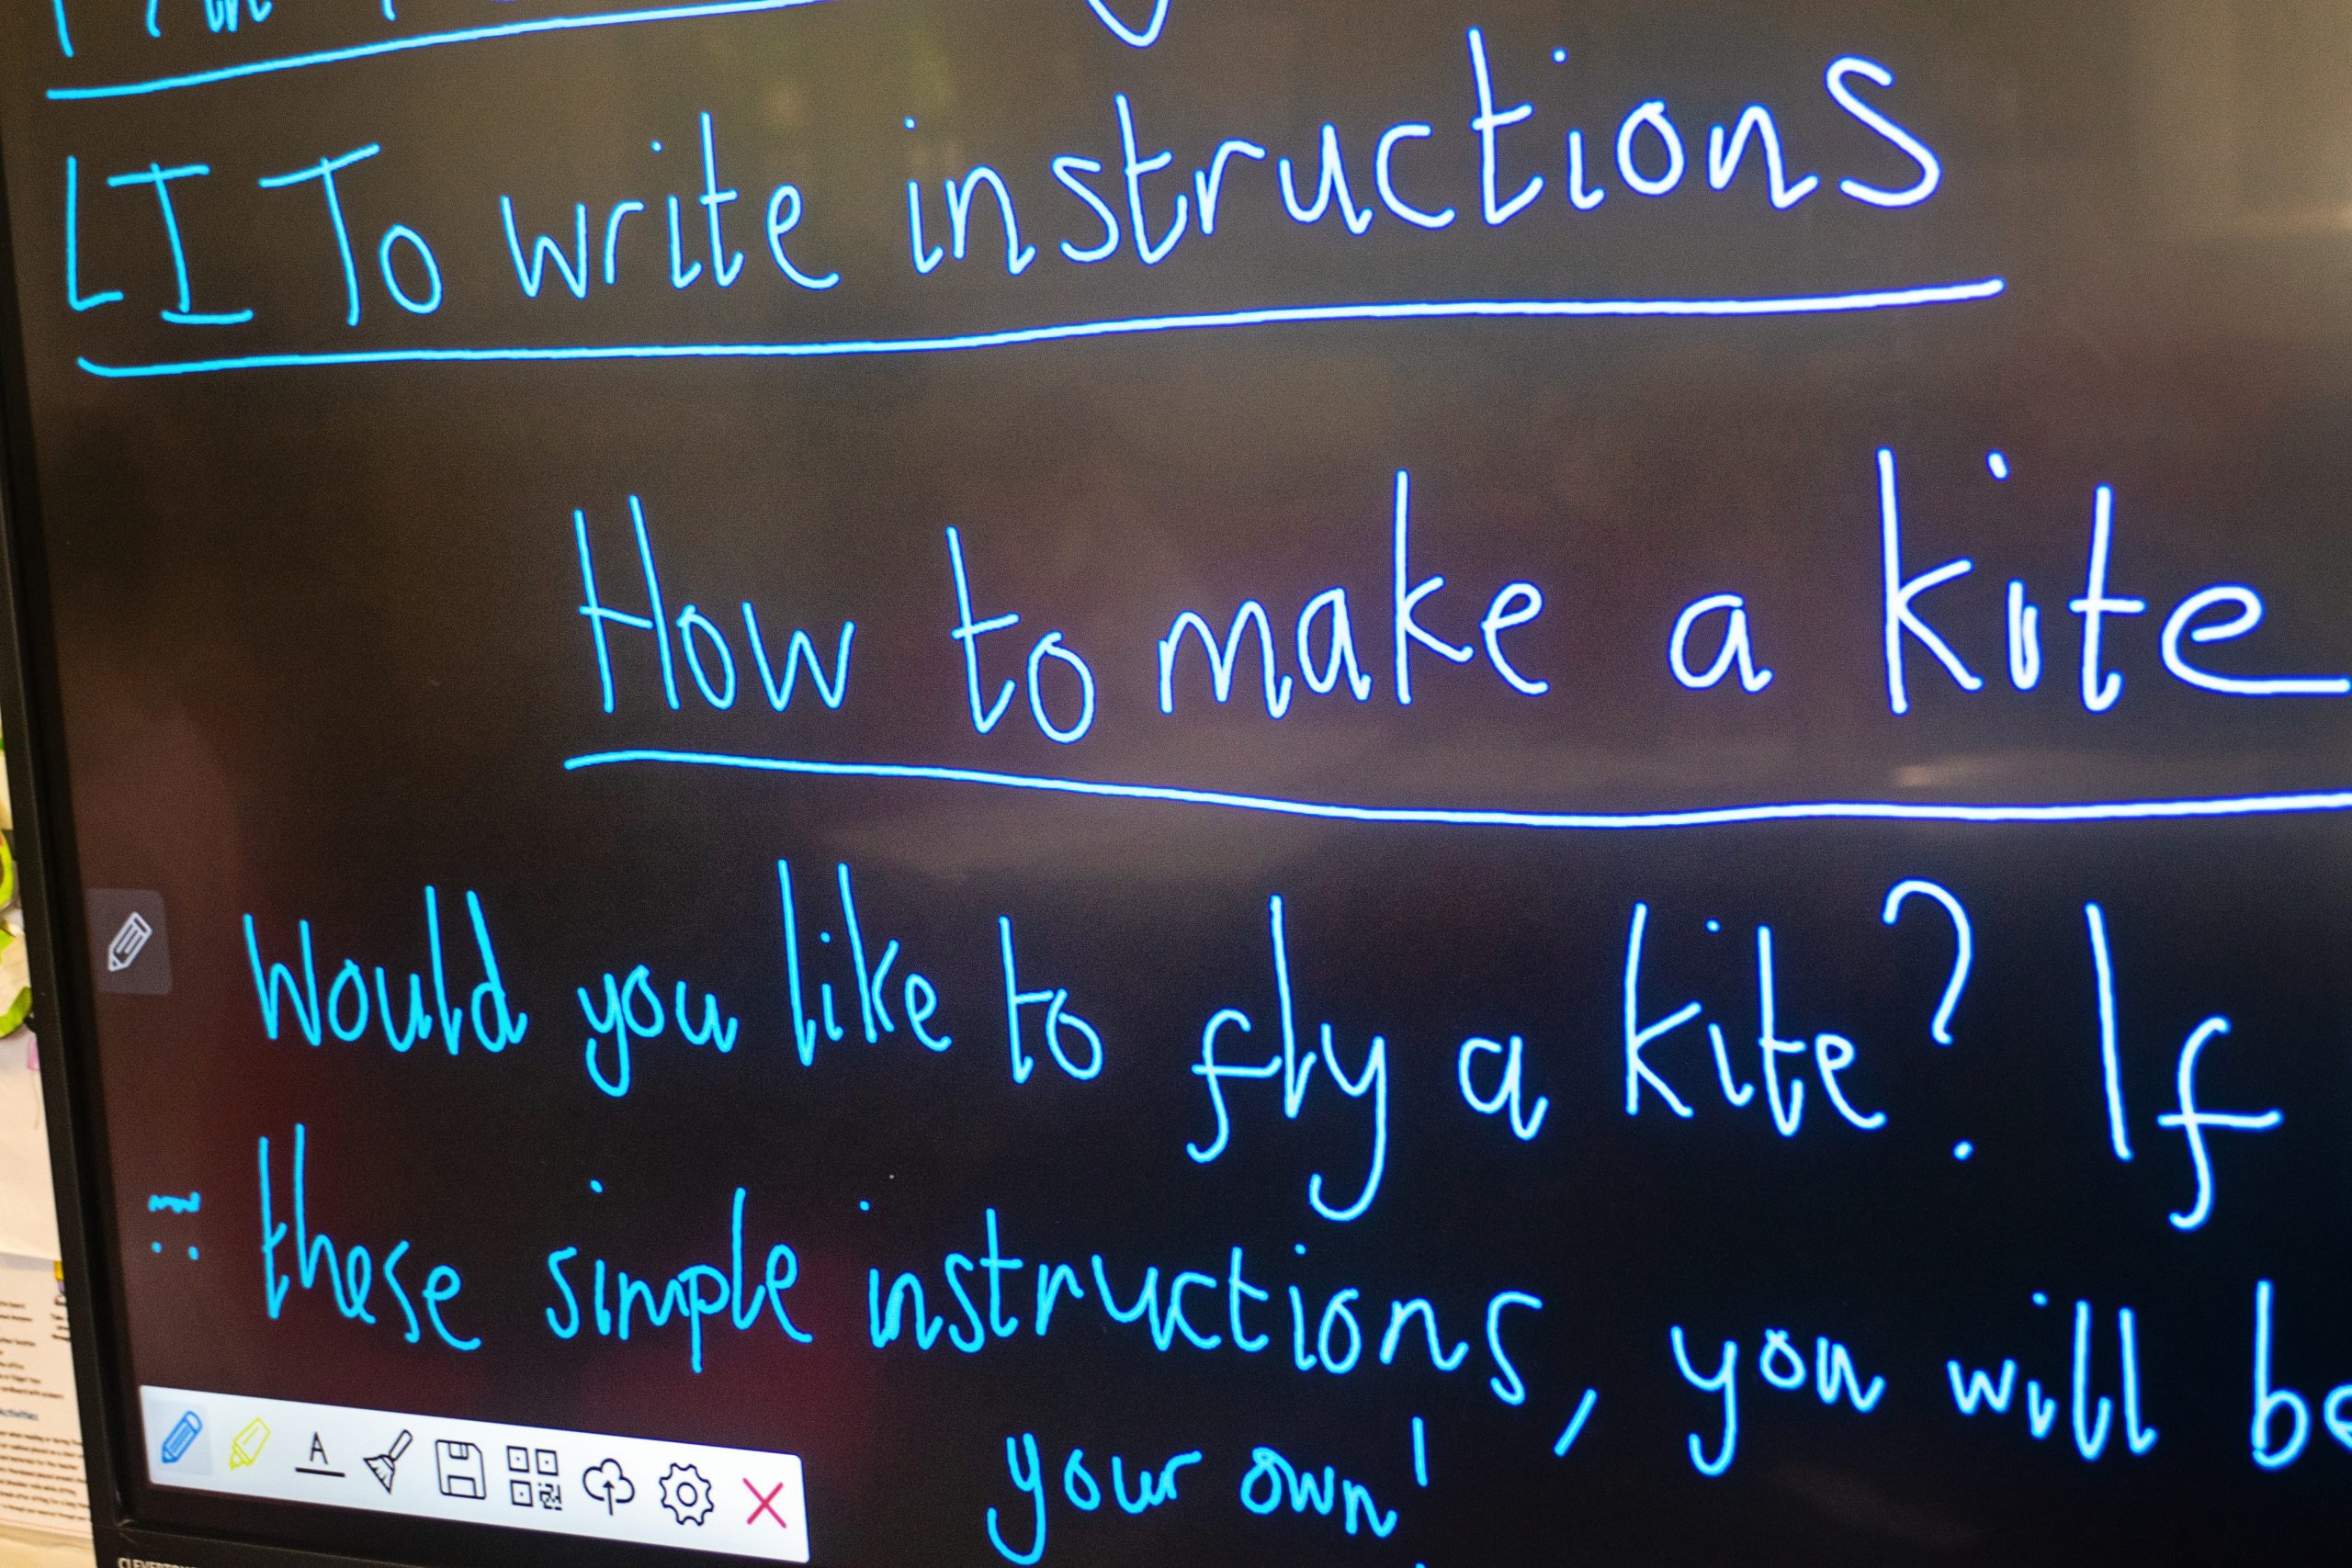 LI To write instructions
How to make a kite
Would you like to fly a kite? If
these simple instructions, you will be
your own!
A